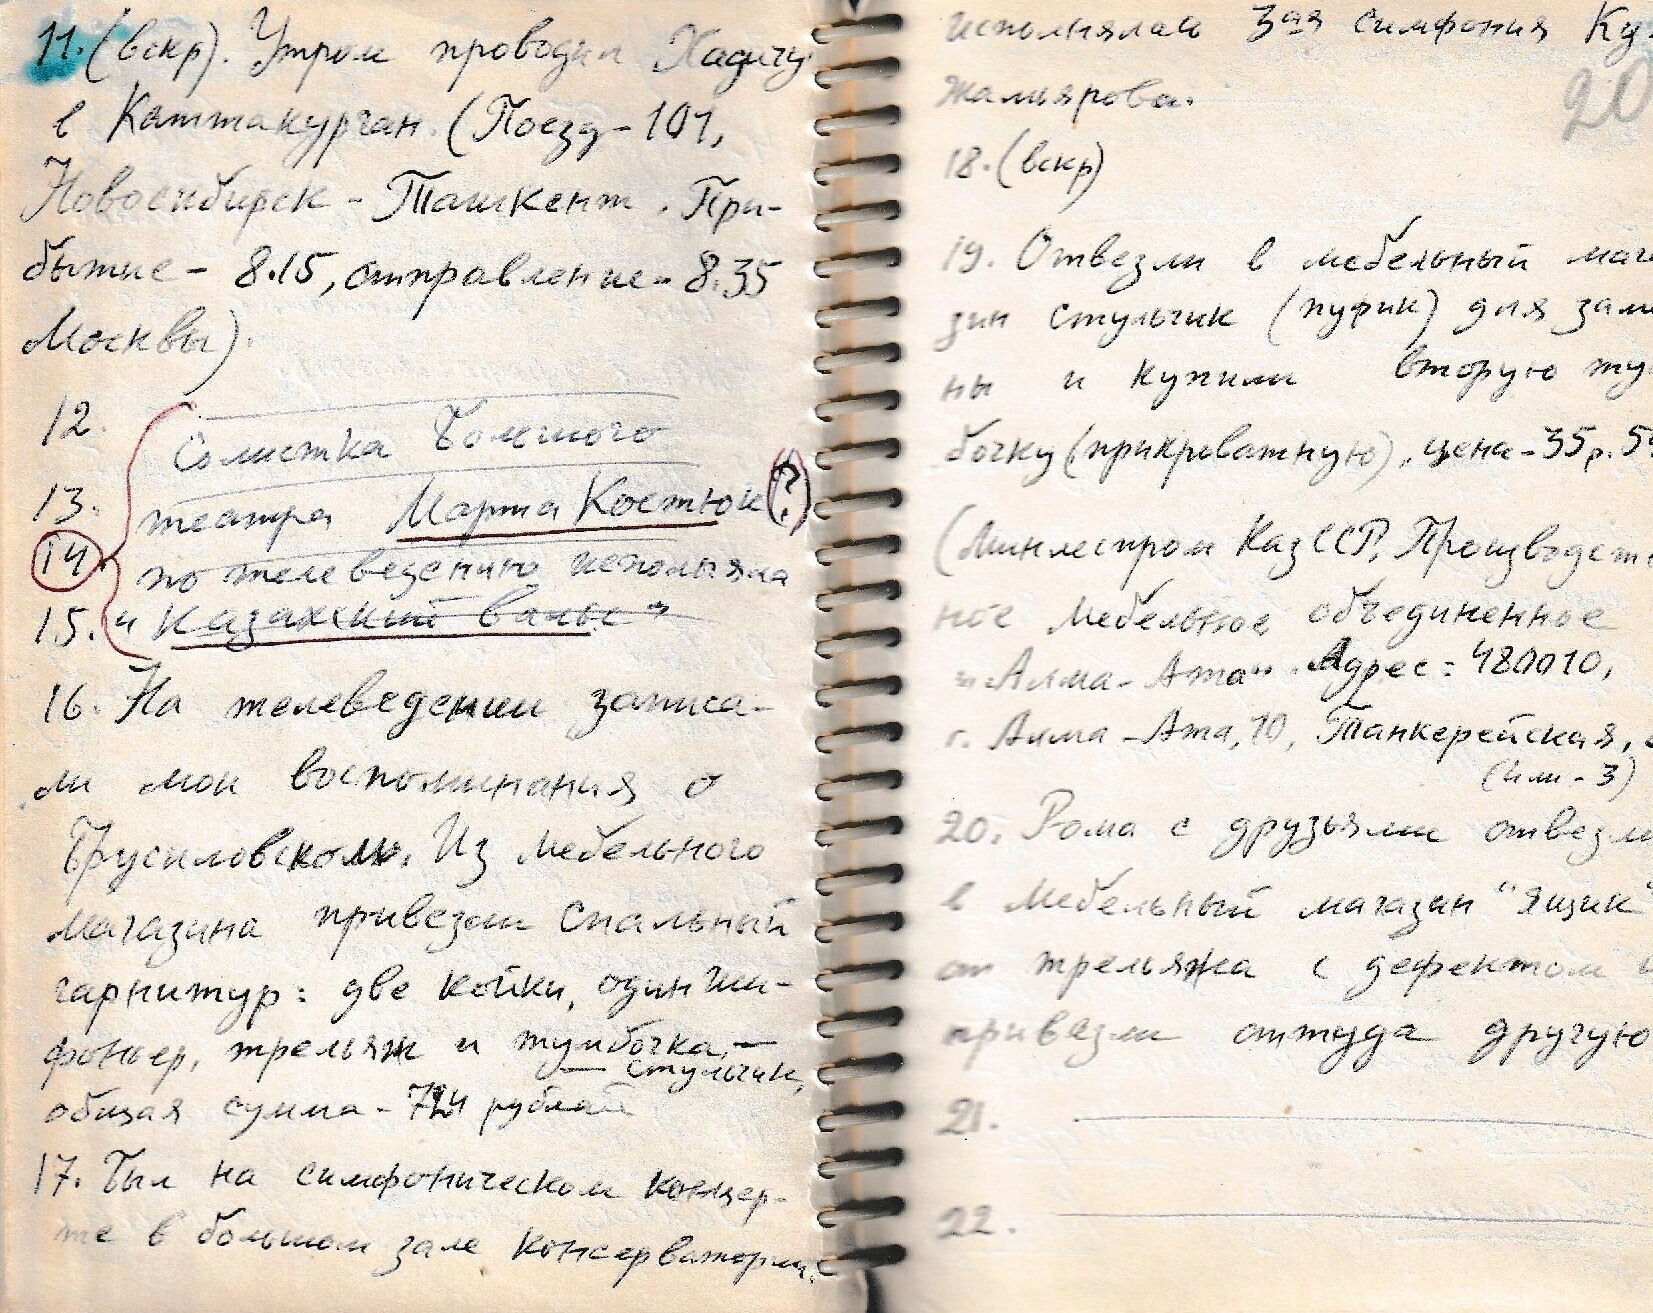 11. (вскр). Утром проводил Хадичу
в Каттакурган. (Поезд - 101,
Новосибирск - Ташкент. При-
бытие - 8.15, отправление - 8.35
Москвы).
12.
Солистка Большого
13. театра Марта Костюк (?)
14. по телевидению исполняла
15. "Казахский вальс"
16. На телеведении записа-
ли мои воспоминания о
Брусиловском. Из мебельного
магазина привезли спальный
гарнитур: две койки, один ши-
фоньер, трельяж и тумбочка, —
— стульчик,
общая сумма - 724 рублей
17. Был на симфоническом концер-
те в большом зале консерватории.
исполнялась 3ая симфония Ку-
жамьярова.
20
18. (вскр)
19. Отвезли в мебельный мага
зин стульчик (пуфик) для заме
ны и купили вторую ту
бочку (прикроватную), цена - 35р. 5
(Минлеспром КазССР, Производств
ное мебельное объединенное
"Алма-Ата". Адрес: 480010,
г. Алма-Ата, 10, Танкерейская,
(или - 3)
20. Рома с друзьями отвезли
в мебельный магазин "ящик"
от трельяжа с дефектом и
привезли оттуда другую
21.
22.